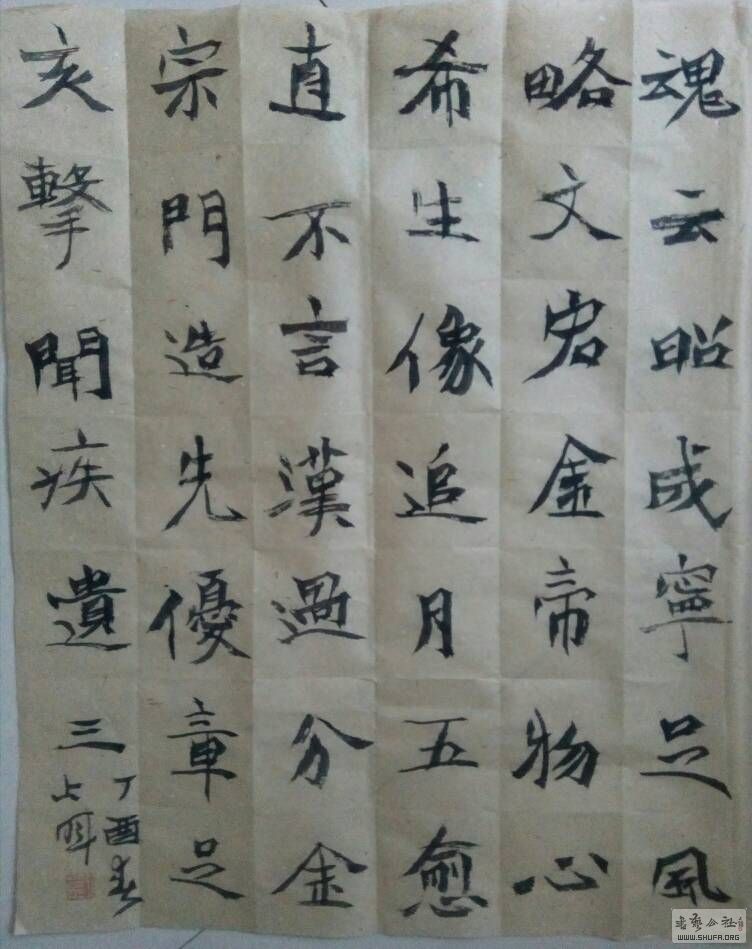 魂云昭成寧足風
略文宕金帝物心
希生像追月五愈
直不言漢過分金
宗門造先優章足
亥擊聞疾遺三
丁酉春
WWW.SHUFA.ORG